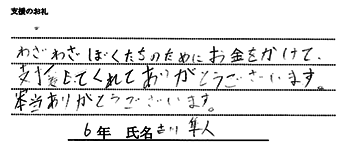 支援のお礼
わざわざぼくたちのためにお金をかけて、
支援をしてくれてありがとうございます。
本当ありがとうございます。
6年 氏名 吉川 隼人